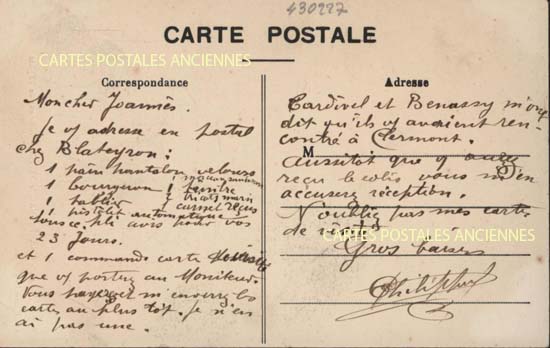 430227
CARTE POSTALE
CARTES POSTALES ANCIENNES
Correspondance
Mon cher Joannès.
Je vs adresse en postal
chez Blateyron:
1 pain pantalon velours
1 bourgeron
1 tablier
1 pistolet automatique
23 Jours.
et 1 commande carte de visite
que vs portez au Moniteur.
Vous payez et m'envoyez les
cartes au plus tôt. Je n'en
ai pas une.
Adresse
Cardivel et Benassy m'ont
dit qu'ils vs avaient ren-
contré à Clermont.
M
Aussitôt que vs aurez
reçu le colis vous m'en
accuserez réception.
N'oubliez pas mes cartes
de visite
CARTES POSTALES ANCIENNES
Gros baisers
Philippe